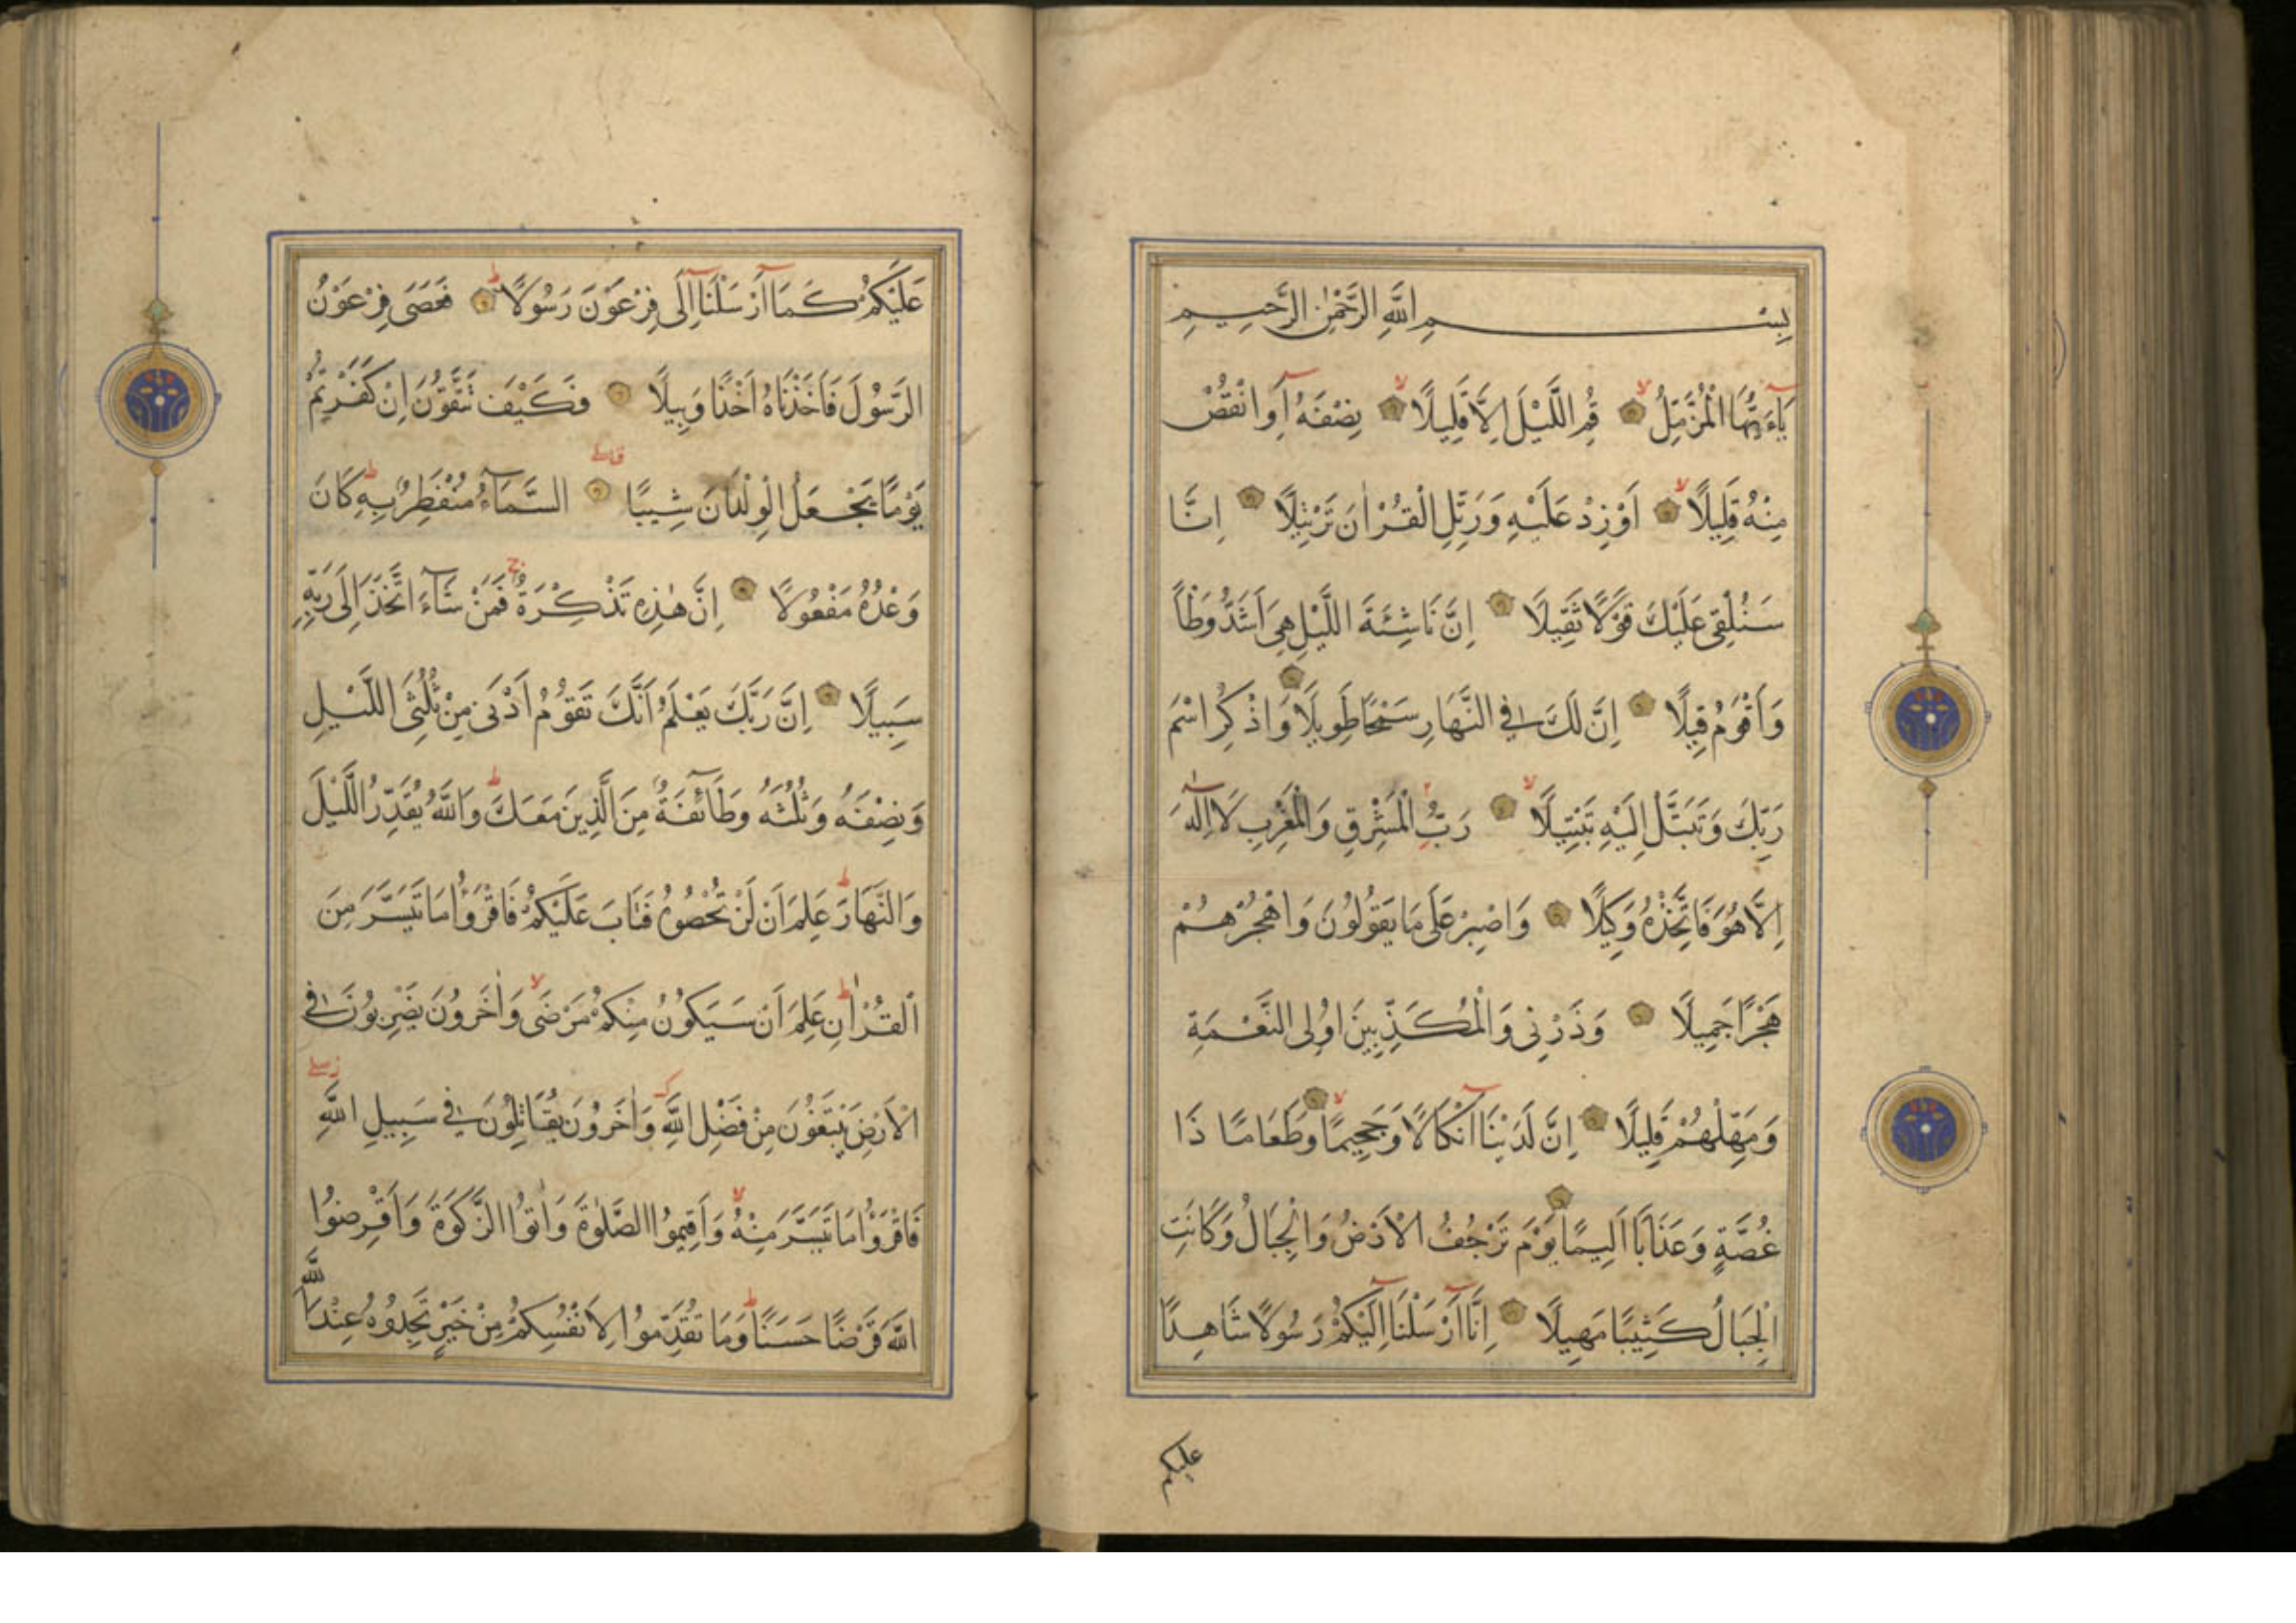 بِسْمِ اللّٰهِ الرَّحْمٰنِ الرَّحِيمِ
يَآءَيُّهَا الْمُزَّمِّلُ قُمِ اللَّيْلَ اِلَّا قَلِيلًا نِصْفَهُ اَوِ انْقُصْ
مِنْهُ قَلِيلًا اَوْ زِدْ عَلَيْهِ وَرَتِّلِ الْقُرْاٰنَ تَرْتِيلًا اِنَّا
سَنُلْقِى عَلَيْكَ قَوْلًا ثَقِيلًا اِنَّ نَاشِئَةَ اللَّيْلِ هِىَ اَشَدُّ وَطْأً
وَاَقْوَمُ قِيلًا اِنَّ لَكَ فِى النَّهَارِ سَبْحًا طَوِيلًا وَاذْكُرِ اسْمَ
رَبِّكَ وَتَبَتَّلْ اِلَيْهِ تَبْتِيلًا رَبُّ الْمَشْرِقِ وَالْمَغْرِبِ لَا اِلٰهَ
اِلَّا هُوَ فَاتَّخِذْهُ وَكِيلًا وَاصْبِرْ عَلَى مَا يَقُولُونَ وَاهْجُرْهُمْ
هَجْرًا جَمِيلًا وَذَرْنِى وَالْمُكَذِّبِينَ اُولِى النَّعْمَةِ
وَمَهِّلْهُمْ قَلِيلًا اِنَّ لَدَيْنَا اَنْكَالًا وَجَحِيمًا وَطَعَامًا ذَا
غُصَّةٍ وَعَذَابًا اَلِيمًا يَوْمَ تَرْجُفُ الْاَرْضُ وَالْجِبَالُ وَكَانَتِ
الْجِبَالُ كَثِيبًا مَهِيلًا اِنَّا اَرْسَلْنَا اِلَيْكُمْ رَسُولًا شَاهِدًا
عليكم
عَلَيْكُمْ كَمَا اَرْسَلْنَا اِلَى فِرْعَوْنَ رَسُولًا ط فَعَصَى فِرْعَوْنُ
الرَّسُولَ فَاَخَذْنَاهُ اَخْذًا وَبِيلًا فَكَيْفَ تَتَّقُونَ اِنْ كَفَرْتُمْ
يَوْمًا يَجْعَلُ الْوِلْدَانَ شِيبًا السَّمَآءُ مُنْفَطِرٌ بِهِ ط كَانَ
وَعْدُهُ مَفْعُولًا اِنَّ هٰذِهِ تَذْكِرَةٌ ج فَمَنْ شَآءَ اتَّخَذَ اِلَى رَبِّهِ
سَبِيلًا اِنَّ رَبَّكَ يَعْلَمُ اَنَّكَ تَقُومُ اَدْنَى مِنْ ثُلُثَىِ اللَّيْلِ
وَنِصْفَهُ وَثُلُثَهُ وَطَآئِفَةٌ مِنَ الَّذِينَ مَعَكَ ط وَاللّٰهُ يُقَدِّرُ اللَّيْلَ
وَالنَّهَارَ ط عَلِمَ اَنْ لَنْ تُحْصُوهُ فَتَابَ عَلَيْكُمْ فَاقْرَؤُا مَا تَيَسَّرَ مِنَ
الْقُرْاٰنِ ط عَلِمَ اَنْ سَيَكُونُ مِنْكُمْ مَرْضَى لا وَاٰخَرُونَ يَضْرِبُونَ فِى
الْاَرْضِ يَبْتَغُونَ مِنْ فَضْلِ اللّٰهِ وَاٰخَرُونَ يُقَاتِلُونَ فِى سَبِيلِ اللّٰهِ
فَاقْرَؤُا مَا تَيَسَّرَ مِنْهُ لا وَاَقِيمُوا الصَّلٰوةَ وَاٰتُوا الزَّكٰوةَ وَاَقْرِضُوا
اللّٰهَ قَرْضًا حَسَنًا ط وَمَا تُقَدِّمُوا لِاَنْفُسِكُمْ مِنْ خَيْرٍ تَجِدُوهُ عِنْدَ اللّٰهِ